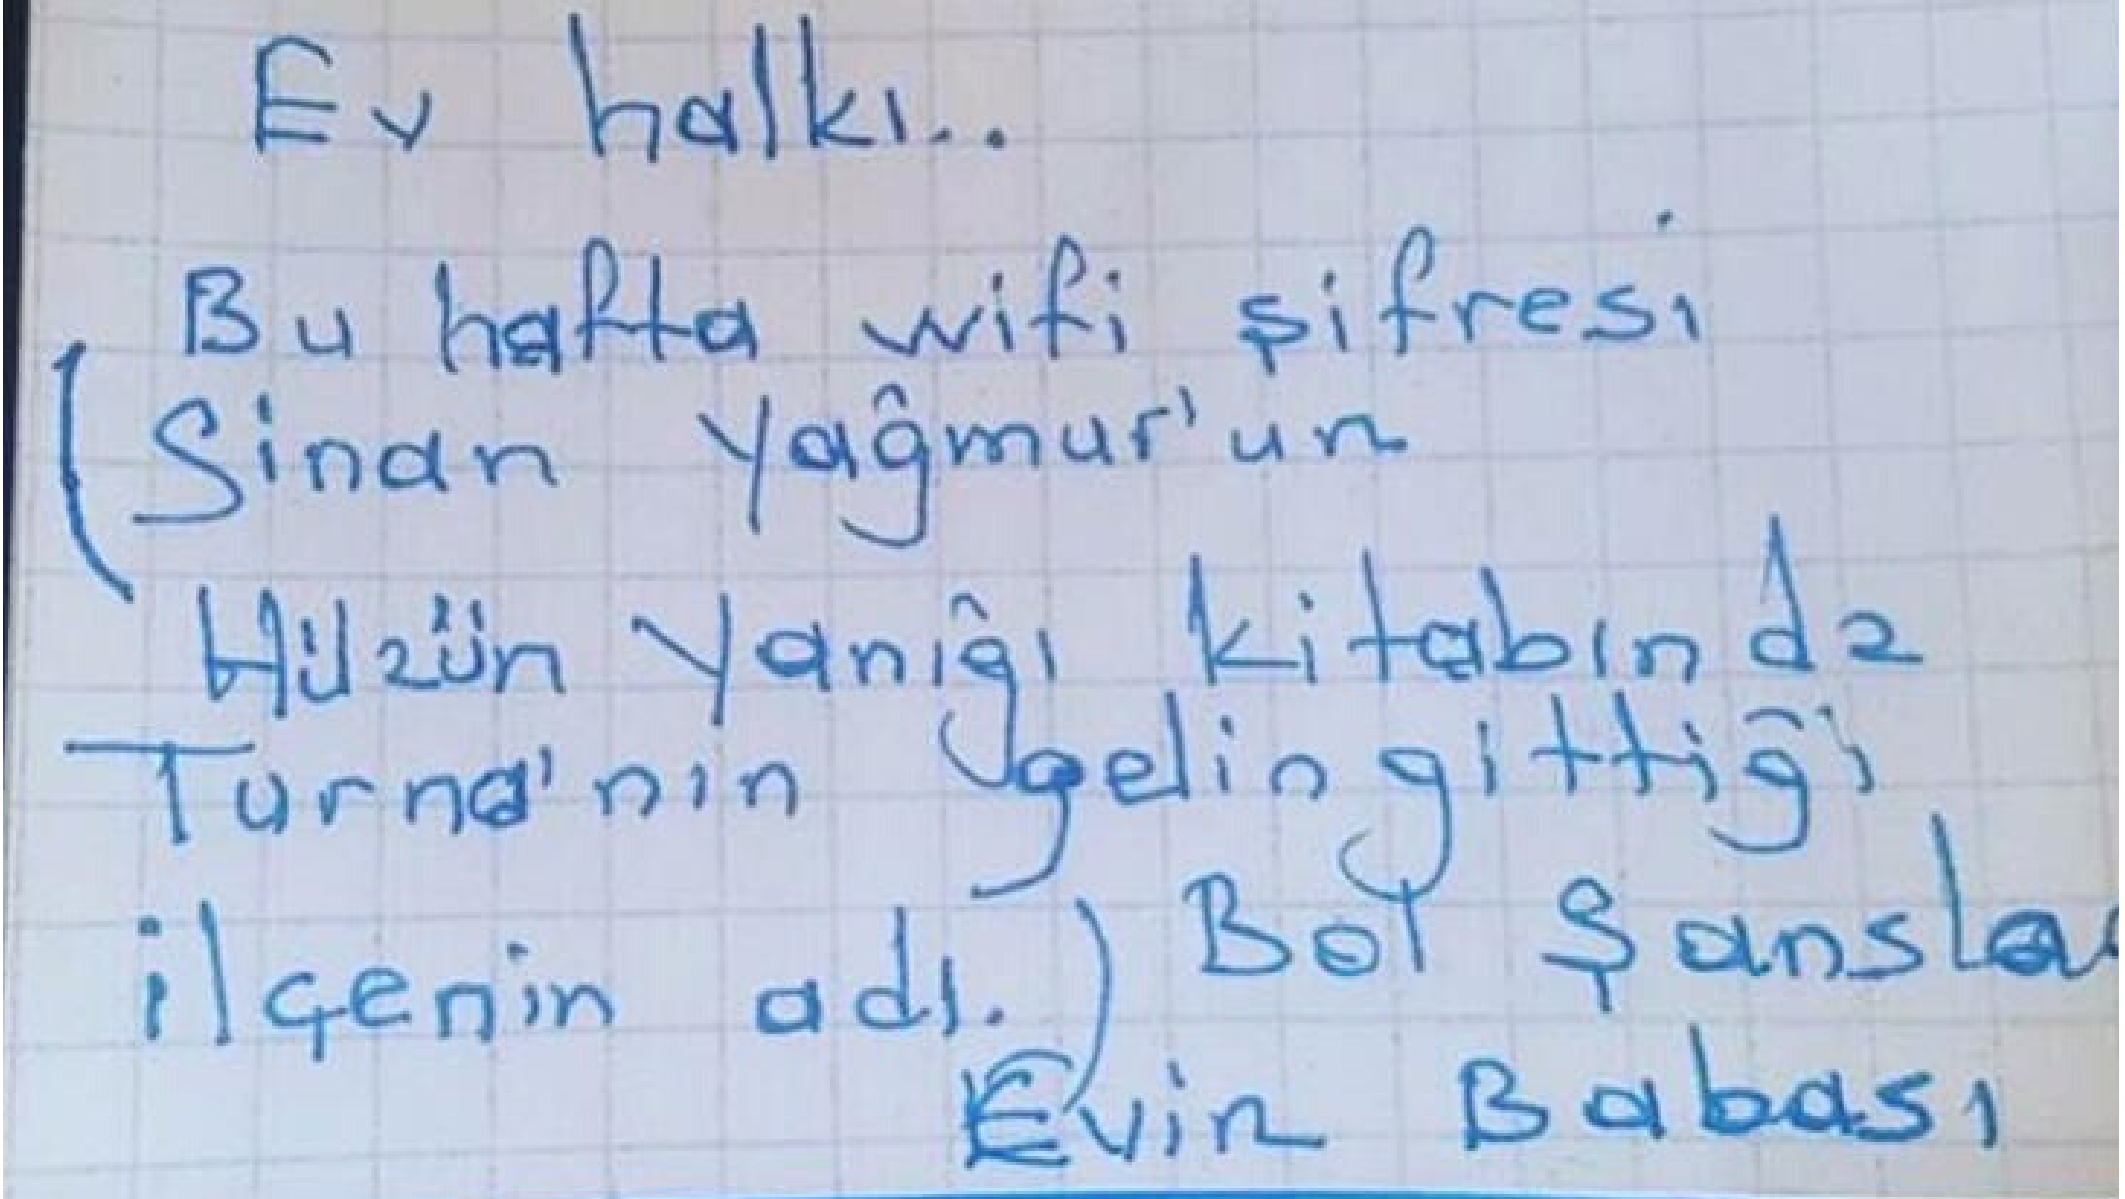 Ev halkı..
Bu hafta wifi şifresi
(Sinan Yağmur'un
Hüzün Yanığı kitabında
Turna'nın gelin gittiği
ilçenin adı.) Bol Şansla
Evin Babası